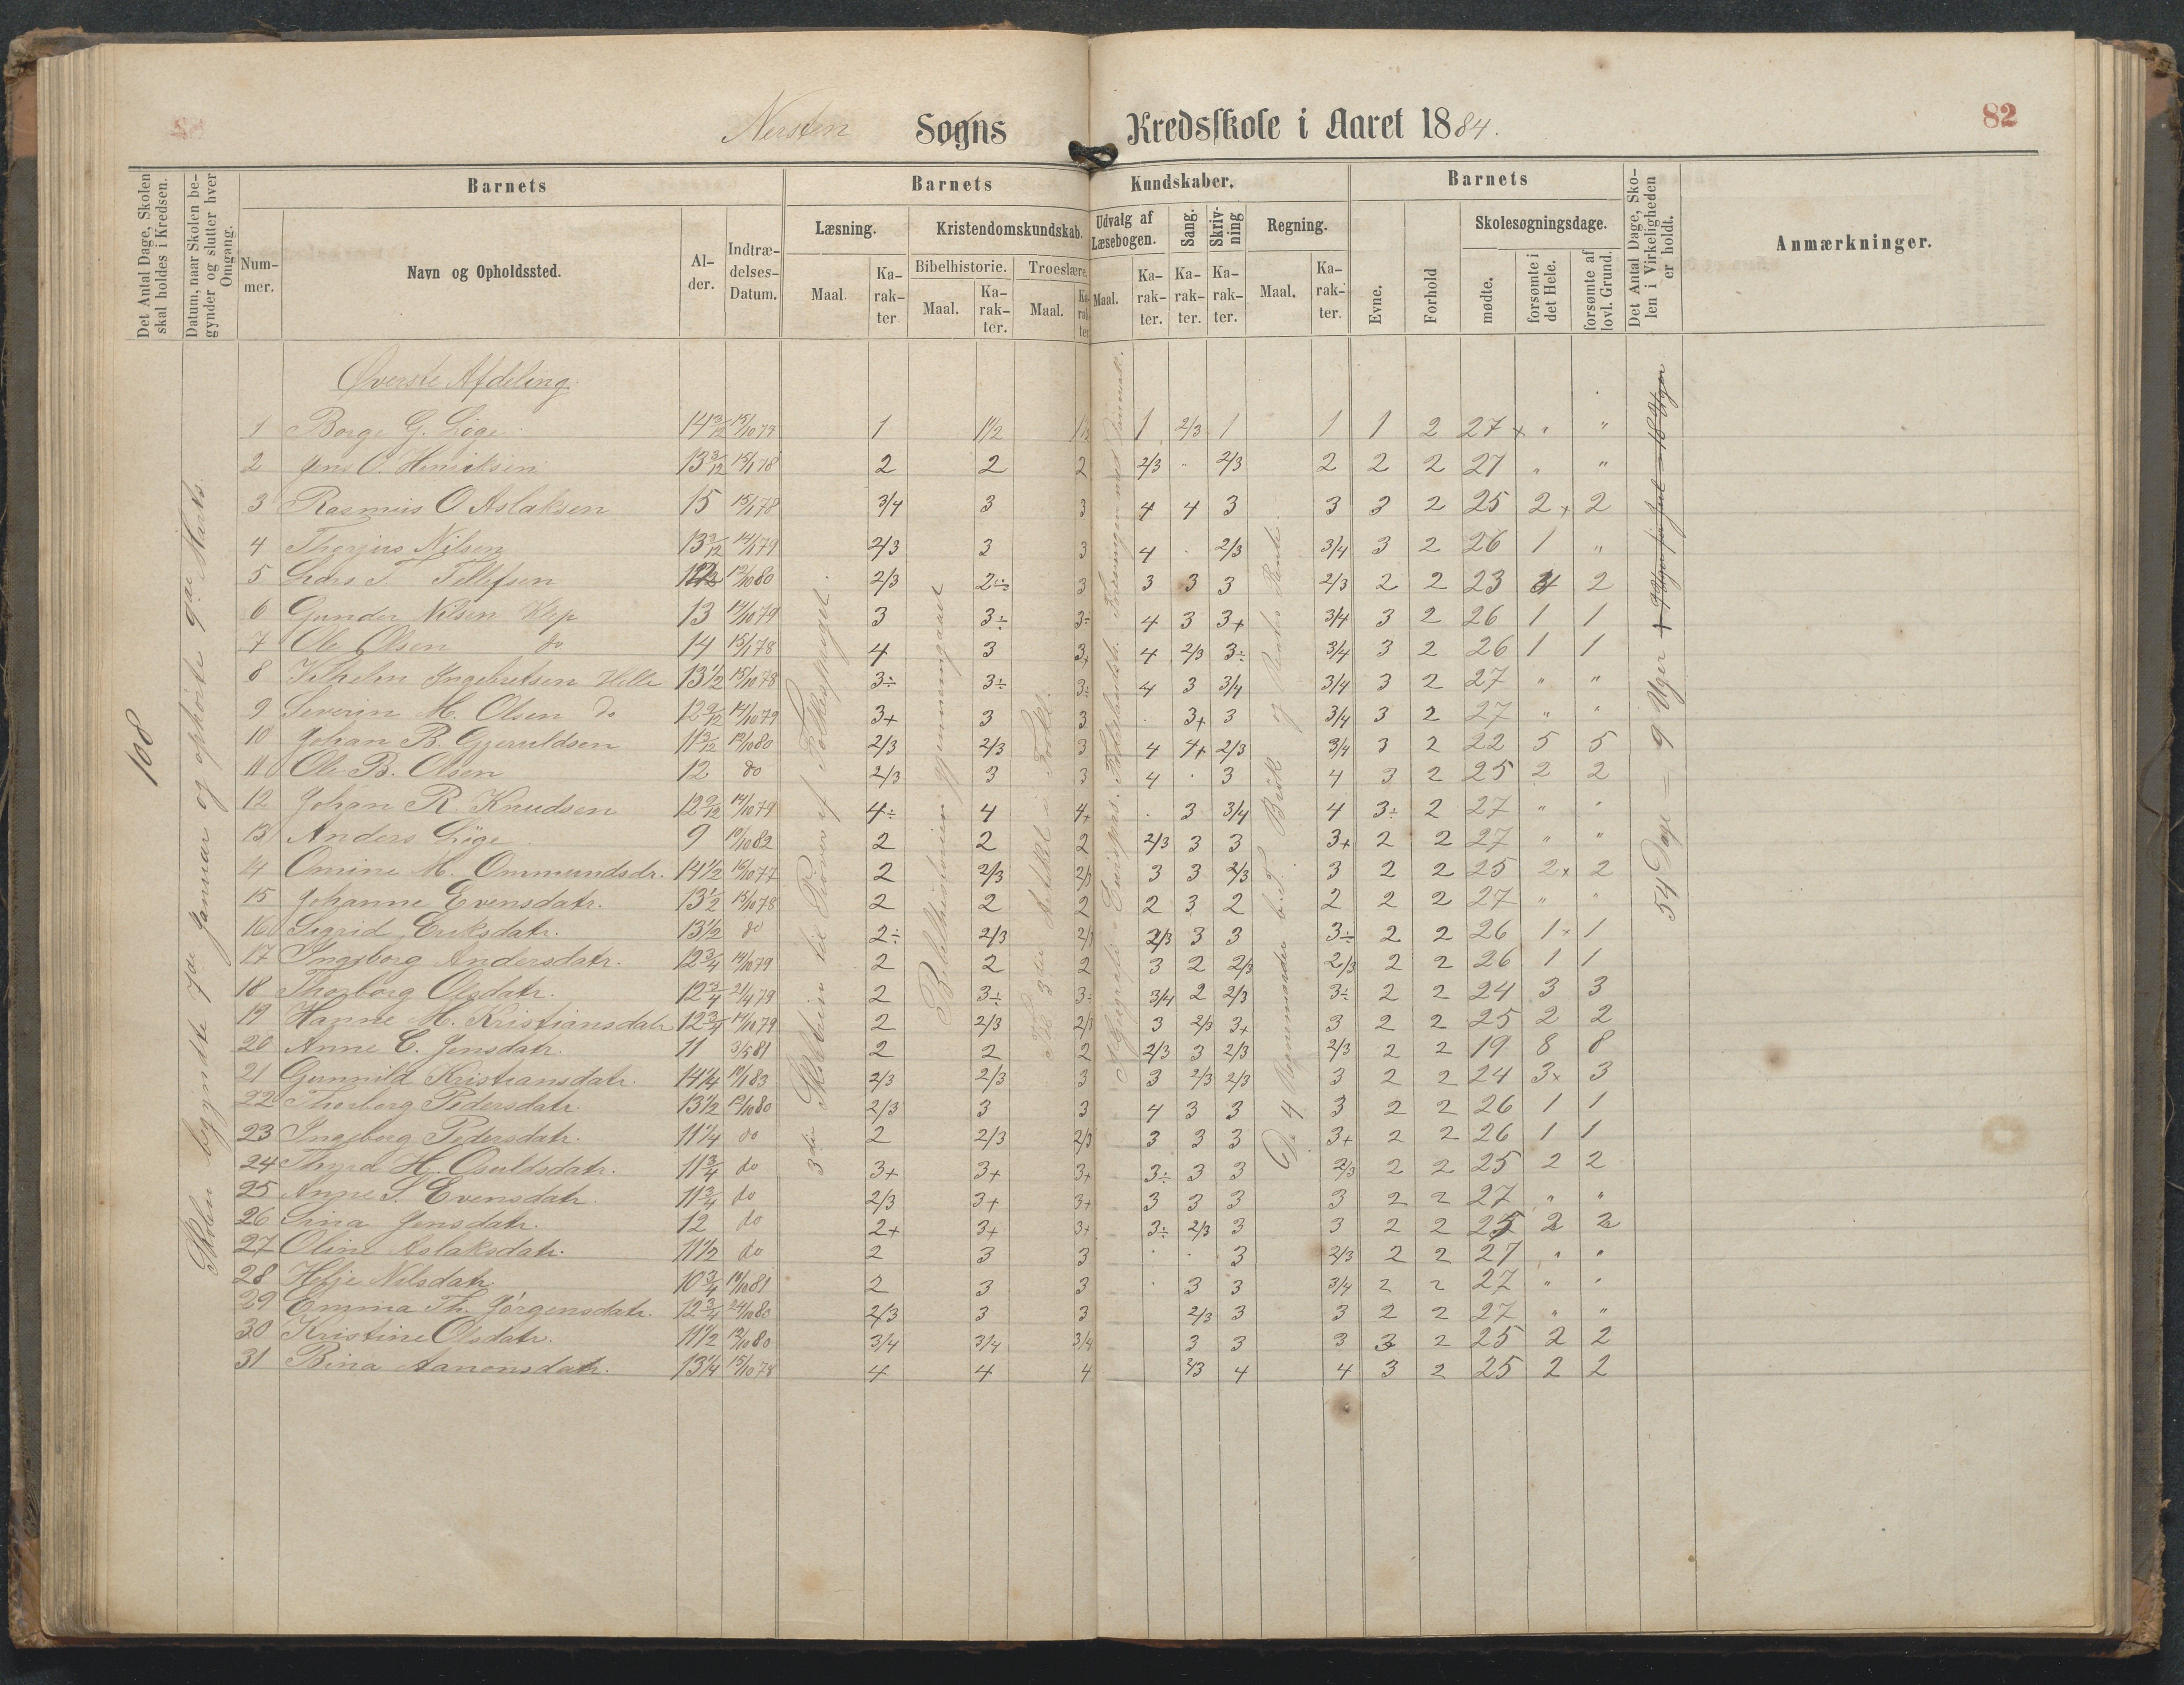 Nersten Sogns Kredsskole i Aaret 1884.
82
Det Antal Dage, Skolen skal holdes i Kredsen.
Datum, naar Skolen begynder og slutter hver Omgang.
Barnets
Barnets Kundskaber.
Barnets
Det Antal Dage, Skolen i Virkeligheden er holdt.
Anmærkninger.
Nummer.
Navn og Opholdssted.
Alder.
Indtrædelses-Datum.
Læsning.
Kristendomskundskab.
Udvalg af Læsebogen.
Sang.
Skrivning
Regning.
Evne.
Forhold
Skolesøgningsdage.
Bibelhistorie.
Troeslære.
Maal.
Karakter
Maal.
Karakter.
Maal.
Karakter
Maal.
Karakter.
Karakter.
Karakter.
Maal.
Karakter.
mødte.
forsømte i det Hele.
forsømte af lovl. Grund.
108
Skolen begyndte 7de Januar og ophørte 9de Marts.
3die Skoletrin til Prøven af Folkesproget.
Bibelhistorien gjennemgaaet
Til 3die Artikel i Forkl.
De 4 Regnemaader b. T. Brøk og Rentes Rente.
54 Dage = 9 Uger
Øverste Afdeling.
1 Borge G. Løge 14 3/12 15/10 77 1 1 1/2 1 1/2 1 2/3 1 1 1 2 27 x " "
2 Jens O. Henriksen 13 3/12 15/1 78 2 2 2 2/3 . 2/3 2 2 2 27 " "
3 Rasmus O. Aslaksen 15 15/1 78 3/4 3 3 4 4 3 3 3 2 25 2 x 2
4 Thorjus Nilsen 13 3/12 14/1 79 2/3 3 3 4 . 2/3 3/4 3 2 26 1 "
5 Lars T. Tellefsen 12/10 80 2/3 2÷ 3 3 3 3 2/3 2 2 23 4 2
6 Gunder Nilsen Klep 13 14/10 79 3 3÷ 3÷ 4 3 3+ 3/4 3 2 26 1 1
7 Ole Olsen do 14 15/1 78 4 3 3+ 4 2/3 3÷ 3/4 3 2 26 1 1
8 Vilhelm Ingebretsen Helle 13 1/2 15/10 78 3÷ 3÷ 3÷ 4 3 3/4 3/4 3 2 27 " "
9 Severin M. Olsen do 12 9/12 14/10 79 3+ 3 3 . 3+ 3 3/4 3 2 27 " "
10 Johan B. Gjeruldsen 11 3/12 12/10 80 2/3 2/3 3 4 4+ 2/3 3/4 3 2 22 5 5
11 Ole B. Olsen 12 do 2/3 3 3 4 . 3 4 3 2 25 2 2
12 Johan R. Knudsen 12 9/12 14/10 79 4÷ 4 4+ . 3 3/4 4 3÷ 2 27 " "
13 Anders Løge 9 10/10 82 2 2 2 2/3 3 3 3+ 2 2 27 " "
14 Omine M. Ommundsdr. 14 1/2 16/10 77 2 2/3 2/3 3 3 2/3 3 2 2 25 2 x 2
15 Johanne Evensdatr. 13 1/2 15/10 78 2 2 2 2 3 2 2 2 2 27 " "
16 Sigrid Eriksdatr. 13 1/2 do 2÷ 2/3 2/3 2/3 3 3 3÷ 2 2 26 1 x 1
17 Ingeborg Andersdatr. 12 3/4 14/10 79 2 2 2 3 2 2/3 2/3 2 2 26 1 1
18 Thorborg Olsdatr. 12 3/4 21/4 79 2 3÷ 3÷ 3/4 2 2/3 3÷ 2 2 24 3 3
19 Hanne M. Kristiansdatr 12 3/4 14/10 79 2 2/3 2/3 3 2/3 3+ 3 2 2 25 2 2
20 Anne C. Jensdatr. 11 3/5 81 2 2 2 2/3 3 2/3 2/3 2 2 19 8 8
21 Gunnild Kristiansdatr. 14 1/4 10/1 83 2/3 2/3 3 3 2/3 2/3 3 2 2 24 3 x 3
22 Thorborg Pedersdatr. 13 1/2 12/10 80 2/3 3 3 4 3 3 3 2 2 26 1 1
23 Ingeborg Pedersdatr. 11 1/4 do 2 2/3 2/3 3 3 3 3+ 2 2 26 1 1
24 Thyra H. Osuldsdatr. 11 3/4 do 3+ 3+ 3+ 3÷ 3 3 2/3 2 2 25 2 2
25 Anne S. Evensdatr. 11 3/4 do 2/3 3+ 3+ 3 3 3 3 2 2 27 " "
26 Sina Jensdatr. 12 do 2+ 3+ 3+ 3÷ 2/3 3 3 2 2 25 2 2
27 Oline Aslaksdatr. 11 1/2 do 2 3 3 . . 3 2/3 2 2 27 " "
28 Helje Nilsdatr. 10 3/4 10/10 81 2 3 3 . 3 3 3/4 2 2 27 " "
29 Emma Th. Jörgensdatr. 12 3/4 24/10 80 2/3 3 3 2/3 3 3 2 2 27 " "
30 Kristine Olsdatr. 11 1/2 12/10 80 3/4 3/4 3/4 3 3 3 3 2 25 2 2
31 Bina Aanonsdatr. 13 1/4 15/10 78 4 4 4 2/3 4 4 3 2 25 2 2